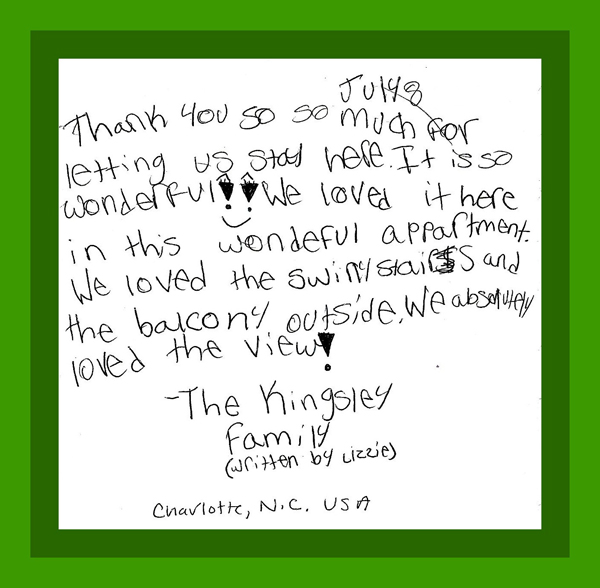 July 8
Thank you so so much for
letting us stay here. It is so
wonderful!! We loved it here
in this wondeful appartment.
We loved the swiny stairs and
the balcony outside. We absolutely
loved the view!
-The Kingsley
Family
(written by Lizzie)
Charlotte, N.C. USA